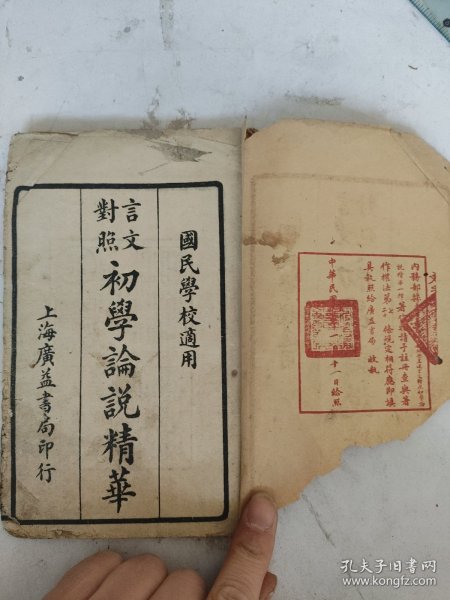 國民學校適用
言文
對照
初學論說精華
上海廣益書局印行
內務部
作權法第
條規定相符應即填
具執照給廣益書局 收執
中華民國
十一日給照
孔夫子旧书网
www.kongfz.com